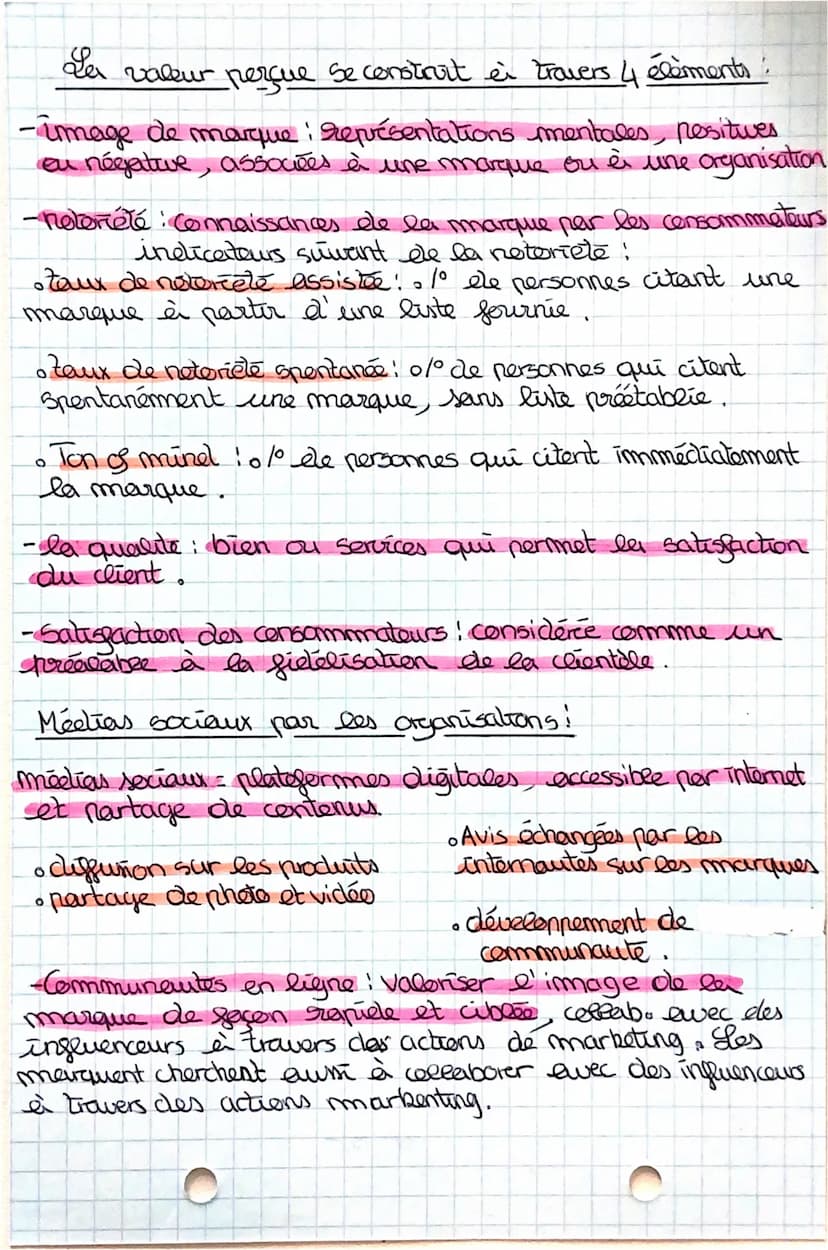 La valeur perçue se construit à travers 4 éléments :
- image de marque : représentations mentales, positives
ou négative, associées à une marque ou à une organisation
- notoriété : connaissances de la marque par les consommateurs
indicateurs suivant de la notoriété :
• taux de notoriété assistée : % de personnes citant une
marque à partir d'une liste fournie.
• taux de notoriété spontanée : % de personnes qui citent
spontanément une marque, sans liste préétablie.
• Top of mind : % de personnes qui citent immédiatement
la marque.
- la qualité : bien ou services qui permet la satisfaction
du client.
- Satisfaction des consommateurs : considérée comme un
préalable à la fidélisation de la clientèle.
Médias sociaux par les organisations :
médias sociaux = plateformes digitales, accessible par internet
et partage de contenus.
• diffusion sur les produits
• partage de photo et vidéo
• Avis échangées par les
internautes sur les marques
• développement de
communauté.
- Communautés en ligne : valoriser l'image de la
marque de façon rapide et ciblée, collab. avec des
influenceurs à travers des actions de marketing. Les
marquent cherchent aussi à collaborer avec des influenceurs
à travers des actions markenting.